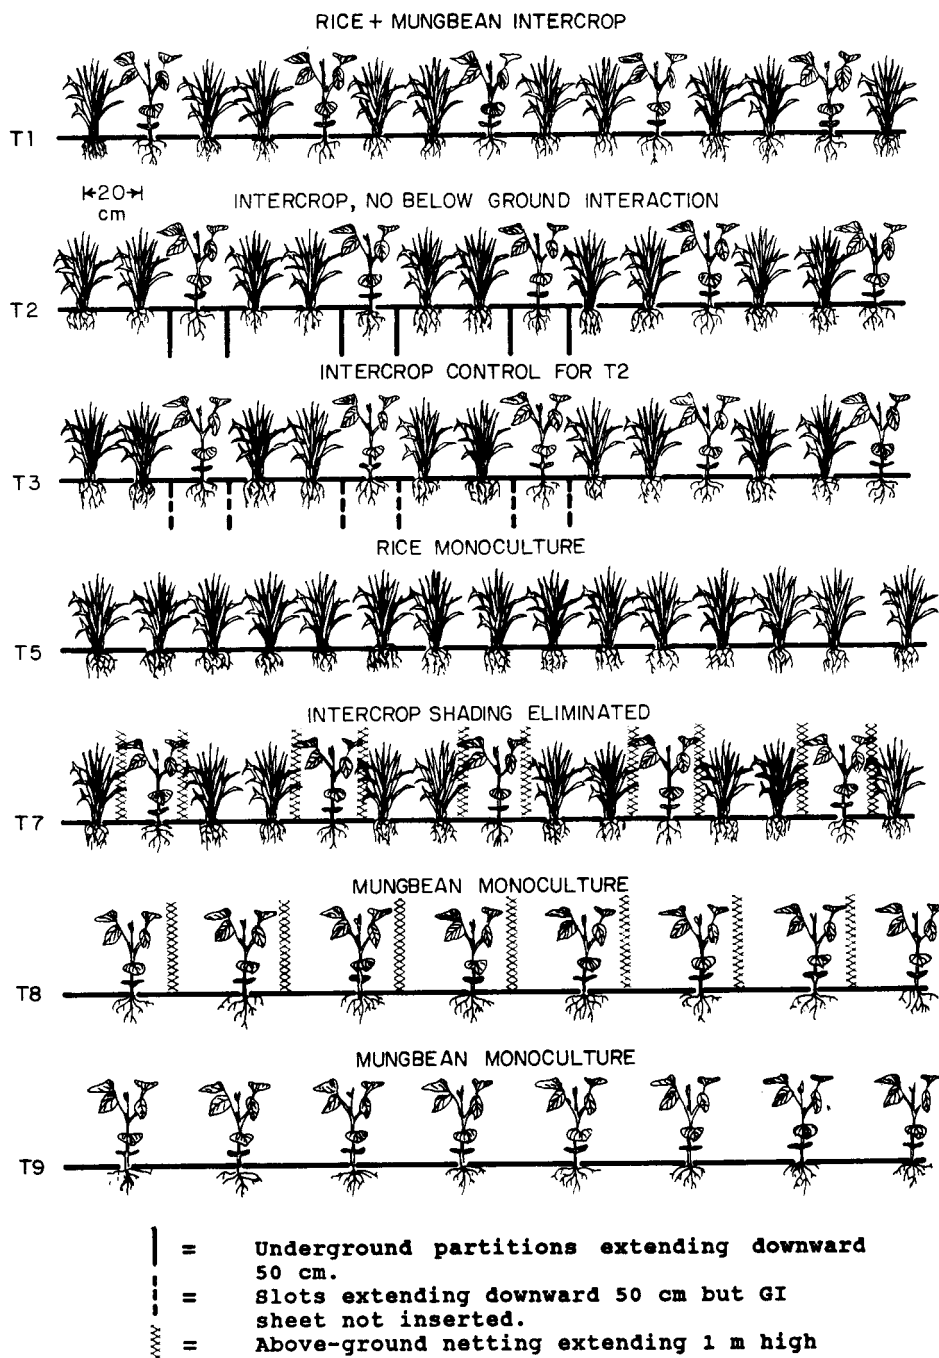 RICE + MUNGBEAN INTERCROP
T1
20
cm
INTERCROP, NO BELOW GROUND INTERACTION
T2
INTERCROP CONTROL FOR T2
T3
RICE MONOCULTURE
T5
INTERCROP SHADING ELIMINATED
T7
MUNGBEAN MONOCULTURE
T8
MUNGBEAN MONOCULTURE
T9
= Underground partitions extending downward
50 cm.
= Slots extending downward 50 cm but GI
sheet not inserted.
= Above-ground netting extending 1 m high